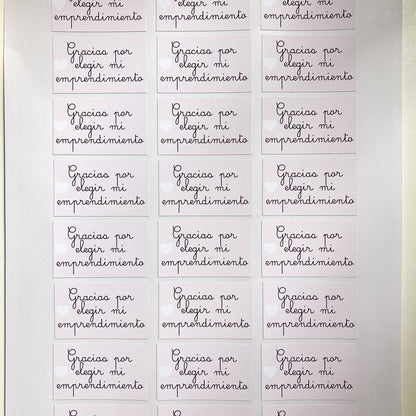 elegir mi
emprendimiento
elegir mi
emprendimiento
elegir mi
emprendimiento
Gracias por
elegir mi
emprendimiento
Gracias por
elegir mi
emprendimiento
Gracias por
elegir mi
emprendimiento
Gracias por
elegir mi
emprendimiento
Gracias por
elegir mi
emprendimiento
Gracias por
elegir mi
emprendimiento
Gracias por
elegir mi
emprendimiento
Gracias por
elegir mi
emprendimiento
Gracias por
elegir mi
emprendimiento
Gracias por
elegir mi
emprendimiento
Gracias por
elegir mi
emprendimiento
Gracias por
elegir mi
emprendimiento
Gracias por
elegir mi
emprendimiento
Gracias por
elegir mi
emprendimiento
Gracias por
elegir mi
emprendimiento
Gracias por
elegir mi
emprendimiento
Gracias por
elegir mi
emprendimiento
Gracias por
elegir mi
emprendimiento
Gracias por
Gracias por
Gracias por